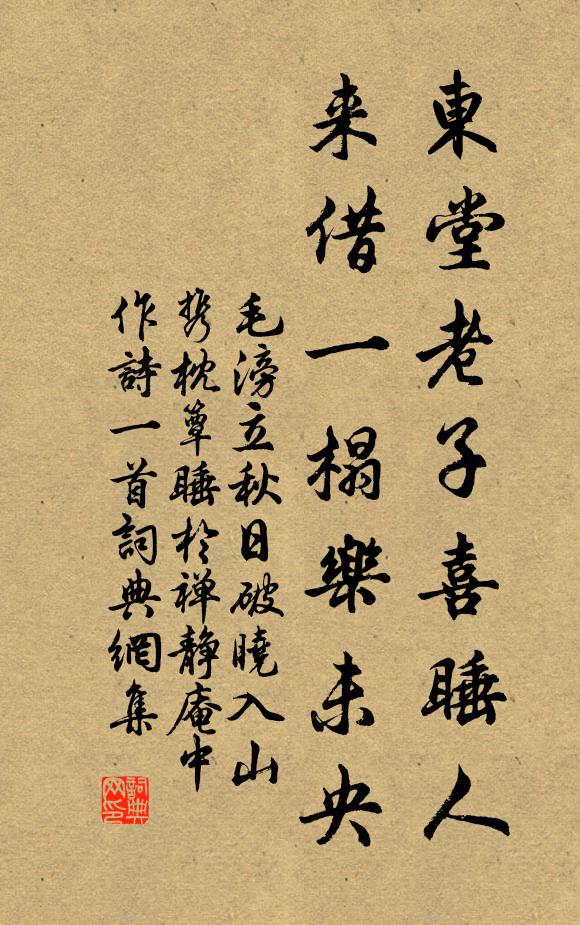 東堂老子喜睡人
来借一榻樂未央
毛滂立秋日破曉入山
携枕簟睡於禅静庵中
作詩一首詞典網集
詞典网印